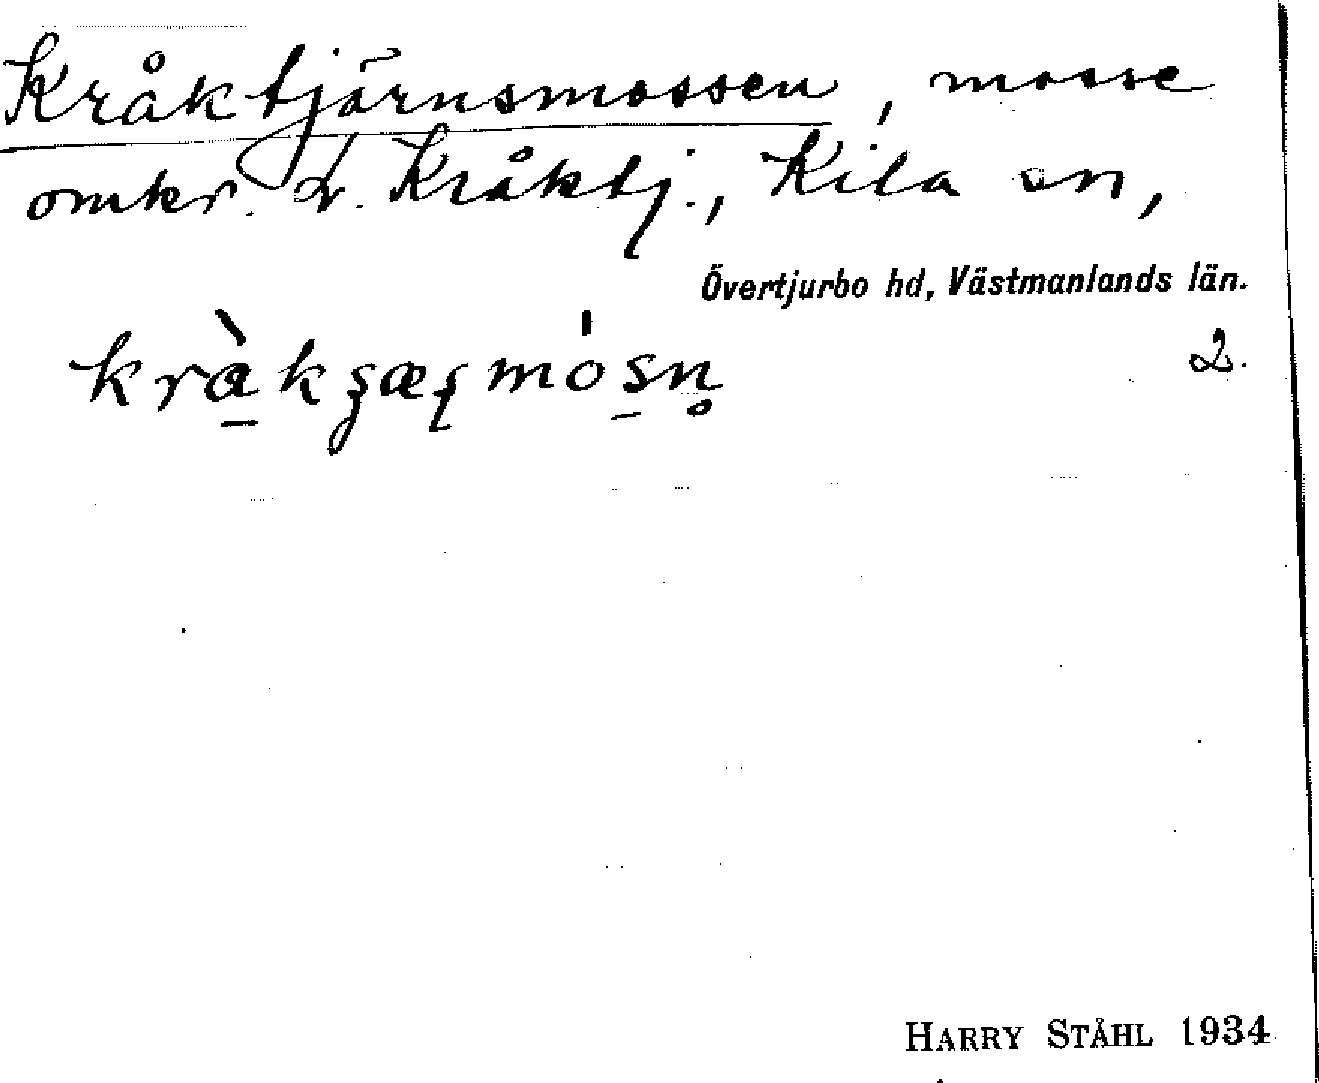 Kråktjärnsmossen, mosse
omkr. L. Kråktj., Kila sn,
Övertjurbo hd, Västmanlands län.
2.
HARRY STÅHL 1934